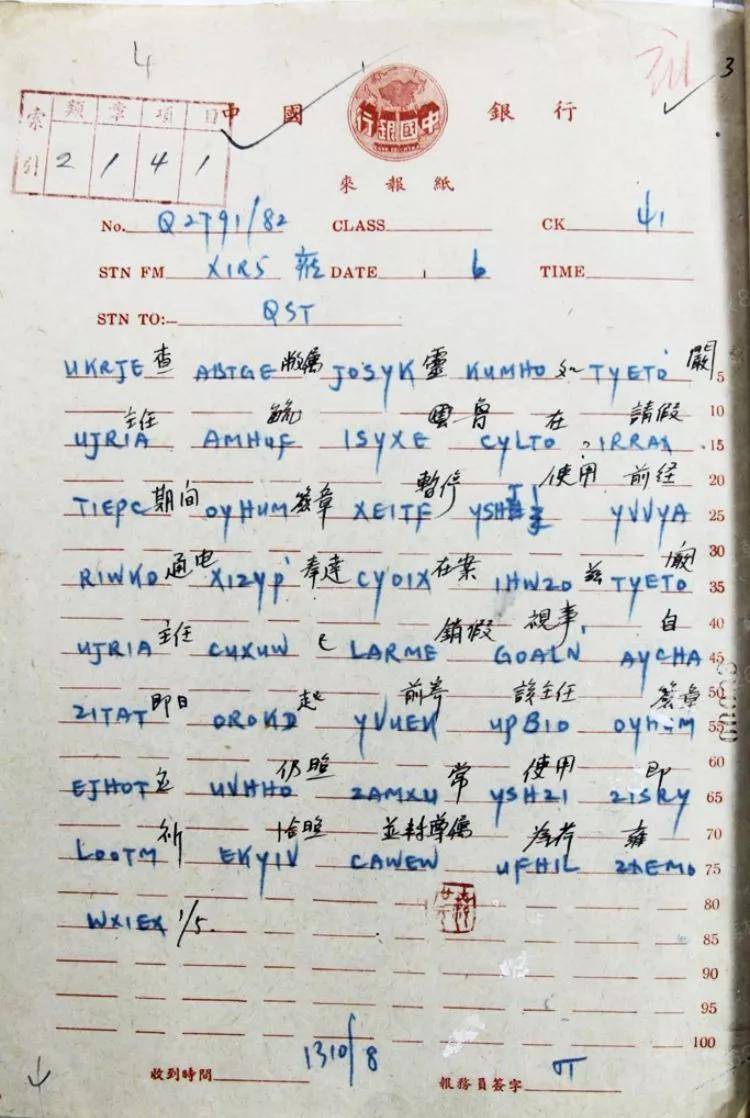 4
3
索引 類 章 項 目
2 1 4 1
中國 銀行
中國銀行
來報紙
No. Q2791/82 CLASS CK 41
STN FM X1RS DATE 6 TIME
STN TO:— QST
查 嚴
UKRJE ABTGE JOSYK KUMHO TYETO 5
10
主任 雲魯 在 請假
UJRIA AMHUF ISYXE CYLTO IRRAX 15
20
期间 簽章 暫停 使用 前経
TIEPC OYHUM XEITF YSH YVVYA 25
30
通电 奉達 在案 兹 嚴
RIWKO XIZYP CYOIX IHWZO TYETO 35
40
主任 銷假 視事, 自
UJRIA CUXUW LARME GOALN AYCHA 45
50
即日 起 前寄 該主任 簽章
ZITAT OROKD YVUEK UPBIO OYHUM 55
60
仍照 常 使用 即
EJHOT UVHHO ZAMXU YSHZI ZISRY 65
70
祈 洽照 並轉尊屬 為荷 雍
LOOTM EKYIV CAWEW UFHIL ZAEMO 75
80
WXIEX 1/5. 85
90
95
100
收到時間 1310/8 報務員簽字